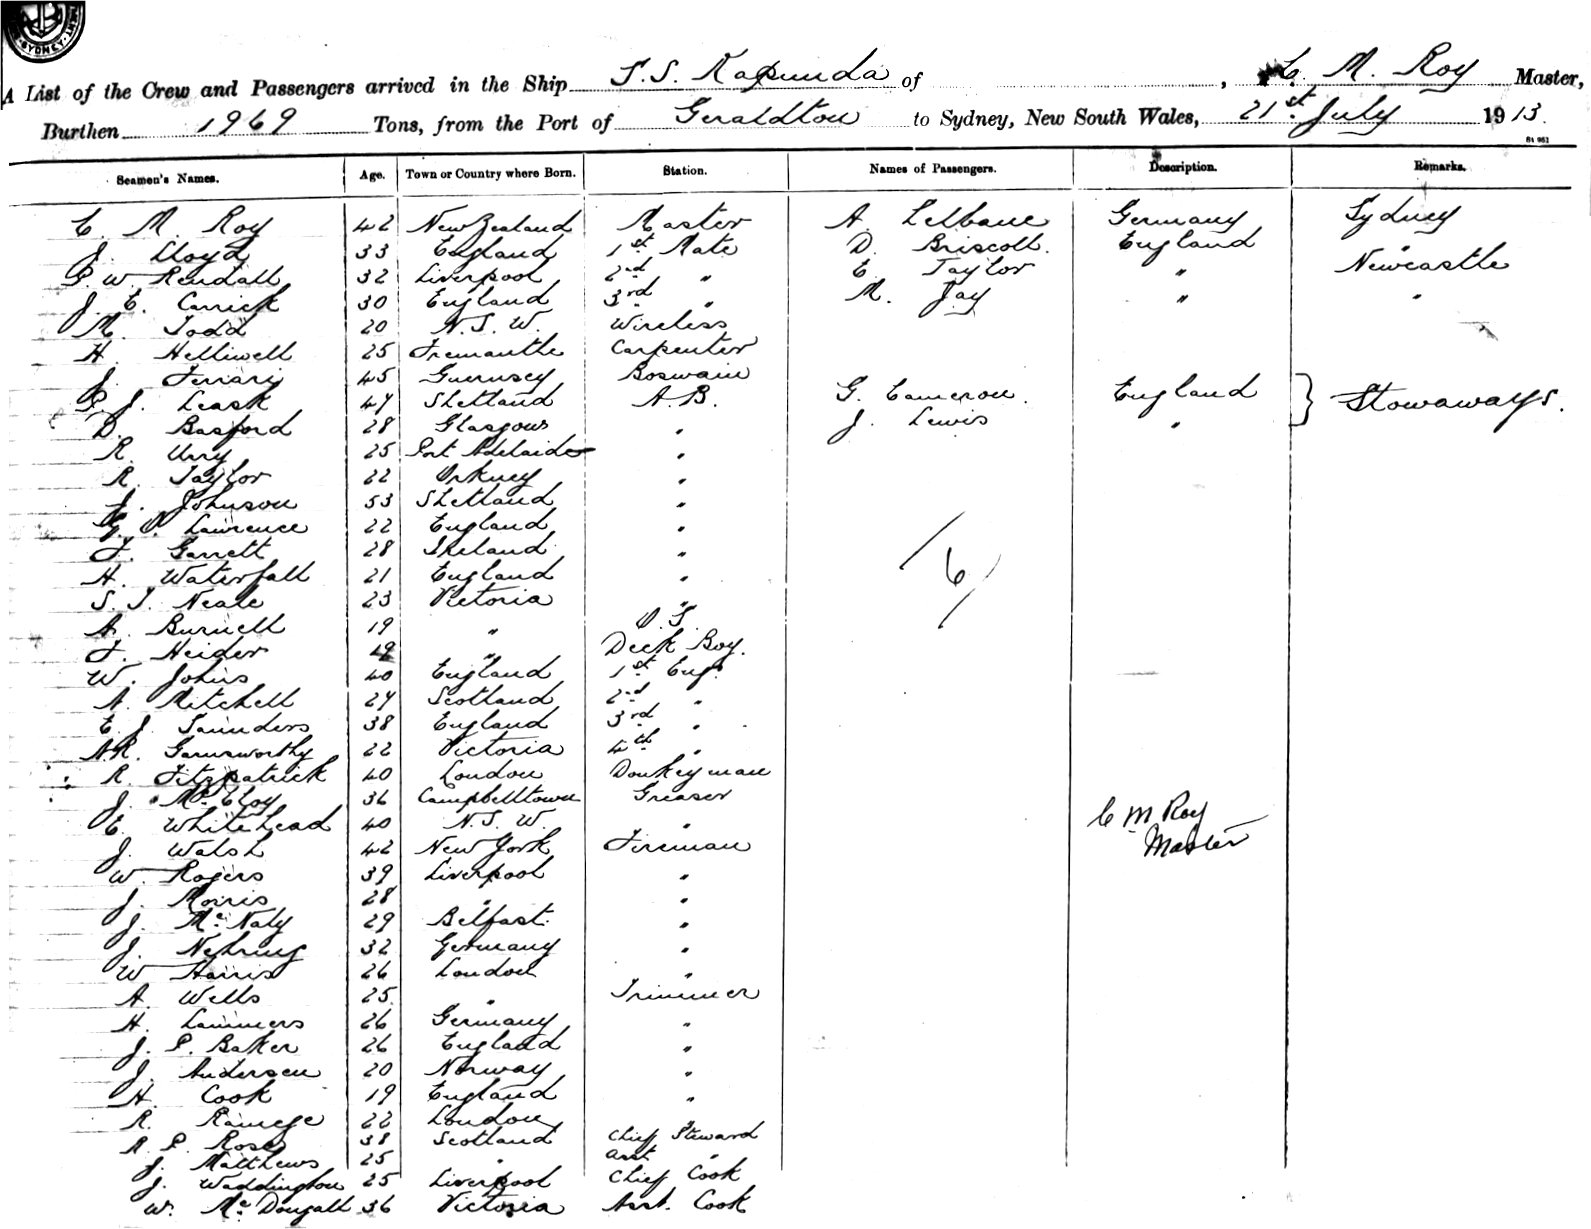 SYDNEY
A List of the Crew and Passengers arrived in the Ship S.S. Kapunda of , C. M. Roy Master,
Burthen 1969 Tons, from the Port of Geraldton to Sydney, New South Wales, 21st July 1913.
Seamen's Names. Age. Town or Country where Born. Station. Names of Passengers. Description. Remarks.
C. M. Roy 42 New Zealand Master A. Germany Sydney
J. Lloyd 33 England 1st Mate D. Briscoll. England "
P. W. Rendall 32 Liverpool 2nd " E. Taylor " Newcastle
J. E. Carrick 30 England 3rd " M. Jay " "
M. Todd 20 N.S.W. Wireless
H. Helliwell 25 Fremantle Carpenter
J. Ferrari 45 Guernsey Boswain
P. J. Leask 47 Shetland A.B. G. Cameron. England } Stowaways.
D. Basford 28 Glasgow " J. Lewis "
R. Urry 25 Port Adelaide "
R. Taylor 22 Orkney "
J. Johnson 53 Shetland "
G. O. Lawrence 22 England "
F. Garrett 28 Ireland "
H. Waterfall 21 England " /6/
S. J. Neale 23 Victoria "
A. Burnell 19 " O.S.
F. Heider " Deck Boy.
W. Johns 40 England 1st Eng.
A. Mitchell 27 Scotland 2nd "
E. J. Saunders 38 England 3rd "
A.R. Garnsworthy 22 Victoria 4th "
R. Fitzpatrick 40 London Donkeyman
J. McCloy 36 Campbelltown Greaser
E. Whitehead 40 N.S.W. " C M Roy
J. Walsh 42 New York Fireman Master
W. Rogers 39 Liverpool "
J. Morris 28 " "
J. McNaly 29 Belfast. "
J. Nehring 32 Germany "
W Harris 26 London "
A. Wells 25 " Trimmer
H. Lammers 26 Germany "
J. P. Baker 26 England "
J. Andersen 20 Norway "
H. Cook 19 England "
R. Ramege 22 London "
R. P. Rose 38 Scotland Chief Steward
J. Matthews 25 " Asst "
J. Waddington 25 Liverpool Chief Cook
W. McDougall 36 Victoria Asst. Cook